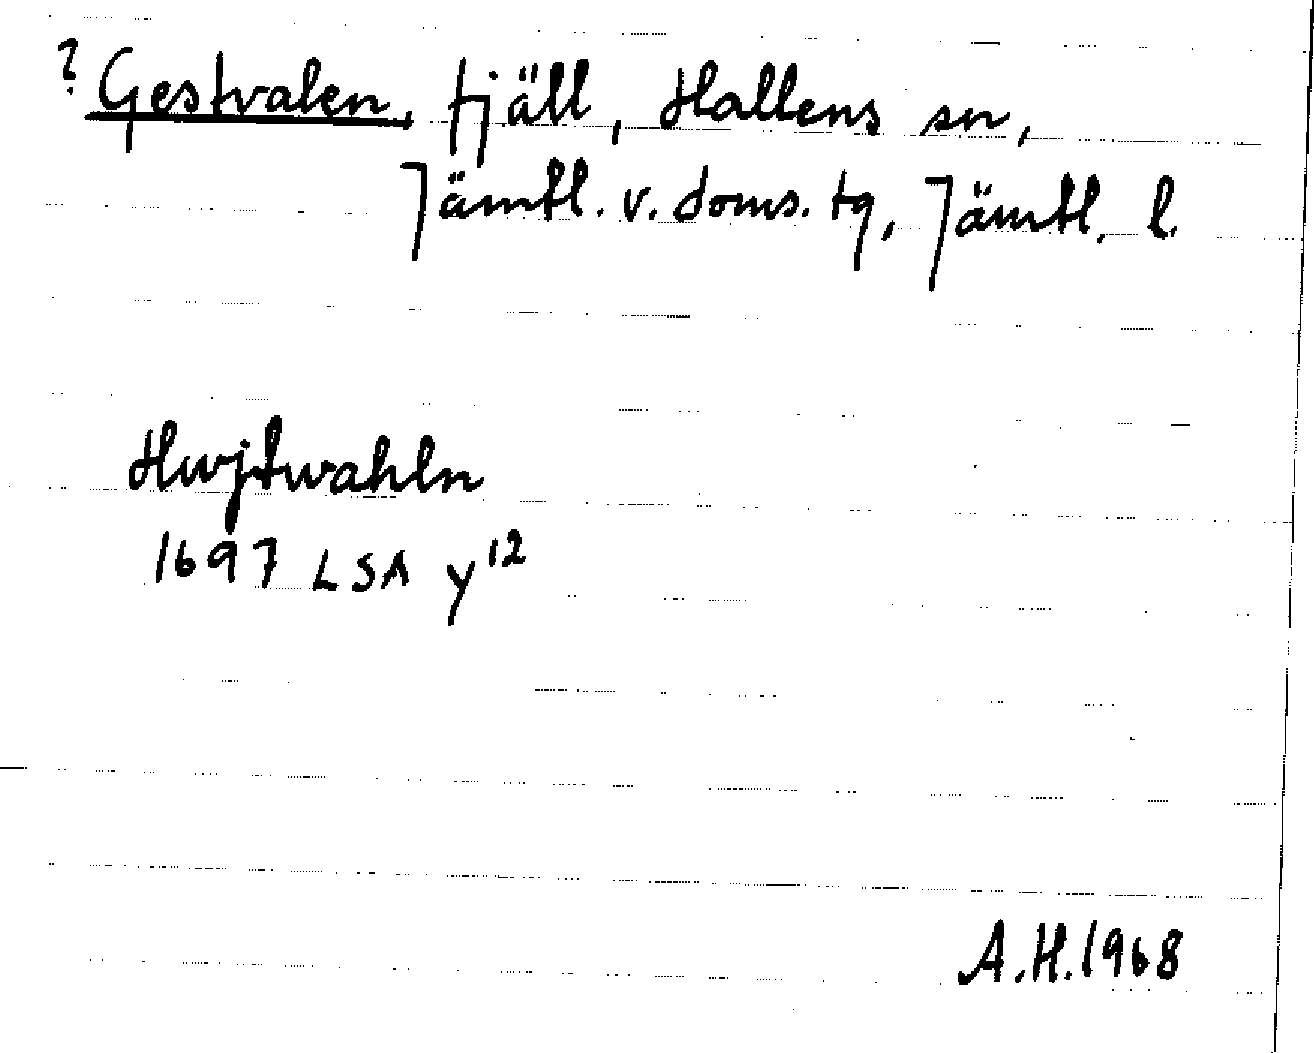 ? Gestvalen, fjäll, Hallens sn,
Jämtl. v. doms. tg, Jämtl. l.
Hwjtwahln
1697 LSA y12
A.H. 1968